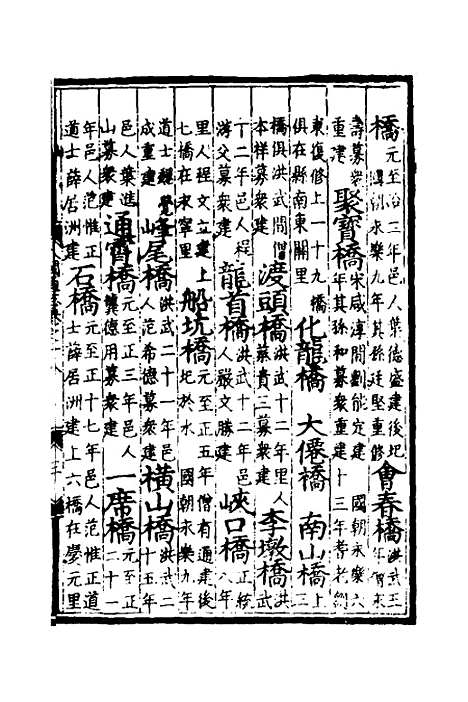 橋元至治二年邑人葉德盛建後圮
國朝永樂九年其孫廷堅重修會春橋洪武三
年僧永
壽募衆
重建聚寶橋宋咸淳間劉能定建 國朝永樂六
年其孫和募衆重建 十三年耆老劉
東復修上一十九橋
俱在縣南東關里化龍橋 大僊橋 南山橋上
三
橋俱洪武間僧
本祥募衆建渡頭橋洪武十二年里人
蔡貴三募衆建李墩橋洪
武
一十二年邑人程
溥父募衆建龍首橋洪武十二年邑
人嚴文勝建峽口橋正統
八年
里人程文立建上
七橋在永寧里船坑橋元至正五年僧有通建後
圮於水 國朝永樂九年
道士程覺
成重建峰尾橋洪武二十一年邑
人范希德募衆建橫山橋洪武二
十五年
邑人葉進
山募衆建通霄橋元至正三年邑人
龔德用募衆建一席橋元至正
二十一
年邑人范惟正
道士薛居洲建石橋元至正十七年邑人范惟正道
士薛居洲建上六橋在學元里